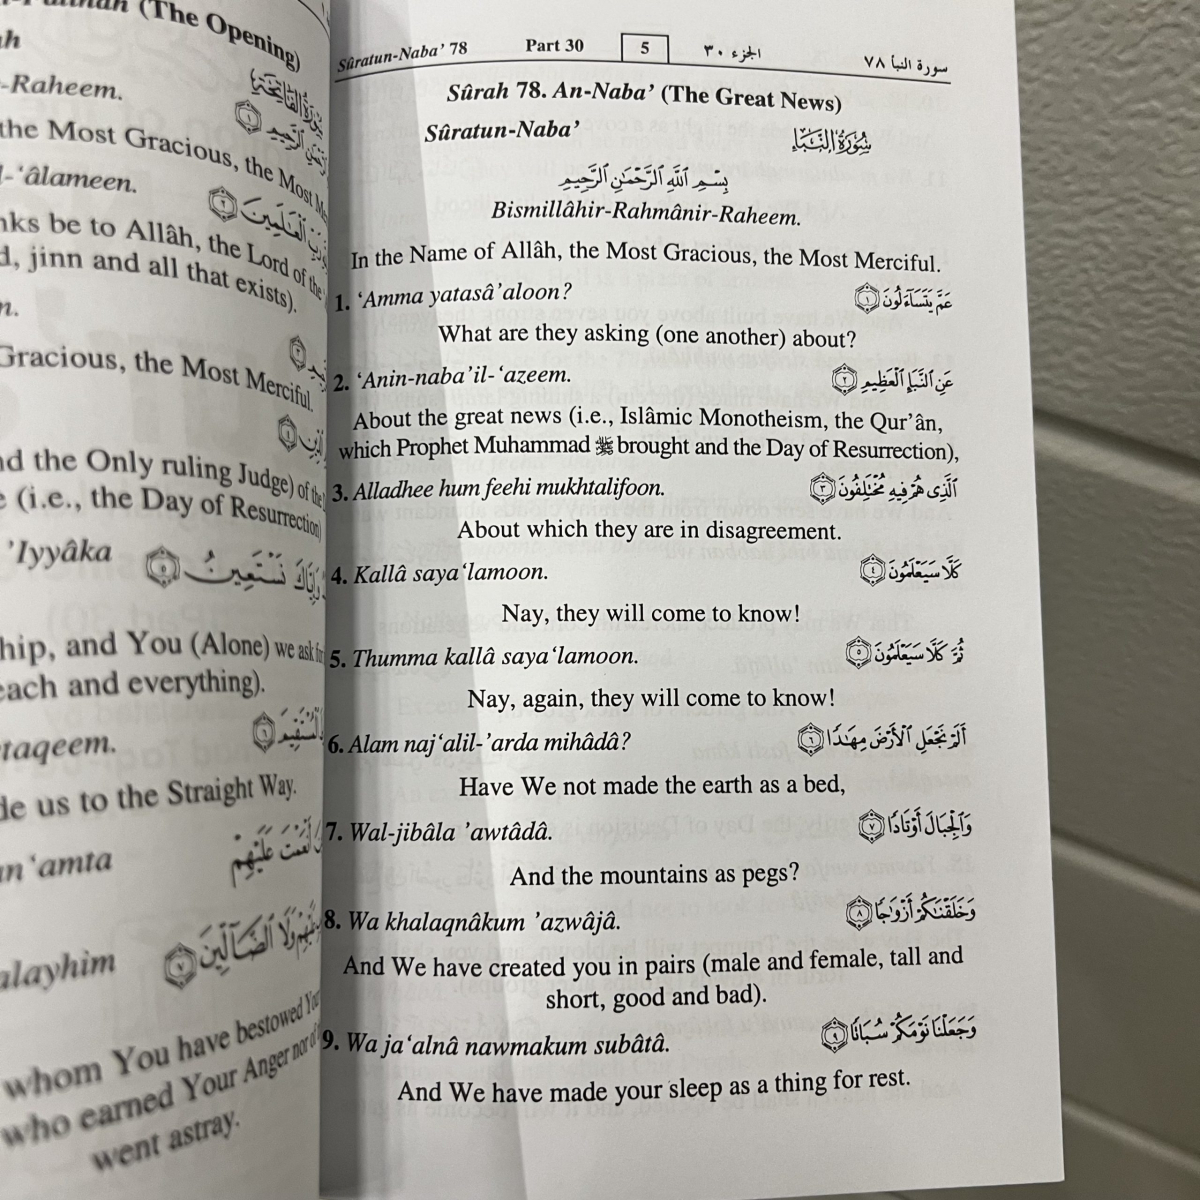 (The Opening)
-Raheem.
the Most Gracious, the Most
l-‘âlameen.
be to Allâh, the Lord of the
jinn and all that exists).
Gracious, the Most Merciful.
the Only ruling Judge) of the
(i.e., the Day of Resurrection)
’Iyyâka
وَإِيَّاكَ نَسْتَعِينُ ٥
and You (Alone) we ask for
each and everything).
us to the Straight Way.
‘amta
أَنْعَمْتَ عَلَيْهِمْ
وَلَا ٱلضَّآلِّينَ ٧
whom You have bestowed Your
who earned Your Anger nor of
went astray.
Sûratun-Naba’ 78 Part 30 5 الجزء ٣٠ سورة النبأ ٧٨
Sûrah 78. An-Naba’ (The Great News)
Sûratun-Naba’ سُورَةُ النَّبَإِ
بِسْمِ ٱللَّهِ ٱلرَّحْمَٰنِ ٱلرَّحِيمِ
Bismillâhir-Rahmânir-Raheem.
In the Name of Allâh, the Most Gracious, the Most Merciful.
1. ‘Amma yatasâ’aloon? عَمَّ يَتَسَآءَلُونَ ١
What are they asking (one another) about?
2. ‘Anin-naba’il-‘azeem. عَنِ ٱلنَّبَإِ ٱلْعَظِيمِ ٢
About the great news (i.e., Islâmic Monotheism, the Qur’ân,
which Prophet Muhammad ﷺ brought and the Day of Resurrection),
3. Alladhee hum feehi mukhtalifoon. ٱلَّذِى هُمْ فِيهِ مُخْتَلِفُونَ ٣
About which they are in disagreement.
4. Kallâ saya‘lamoon. كَلَّا سَيَعْلَمُونَ ٤
Nay, they will come to know!
5. Thumma kallâ saya‘lamoon. ثُمَّ كَلَّا سَيَعْلَمُونَ ٥
Nay, again, they will come to know!
6. Alam naj‘alil-’arda mihâdâ? أَلَمْ نَجْعَلِ ٱلْأَرْضَ مِهَٰدًا ٦
Have We not made the earth as a bed,
7. Wal-jibâla ’awtâdâ. وَٱلْجِبَالَ أَوْتَادًا ٧
And the mountains as pegs?
8. Wa khalaqnâkum ’azwâjâ. وَخَلَقْنَٰكُمْ أَزْوَٰجًا ٨
And We have created you in pairs (male and female, tall and
short, good and bad).
9. Wa ja‘alnâ nawmakum subâtâ. وَجَعَلْنَا نَوْمَكُمْ سُبَاتًا ٩
And We have made your sleep as a thing for rest.